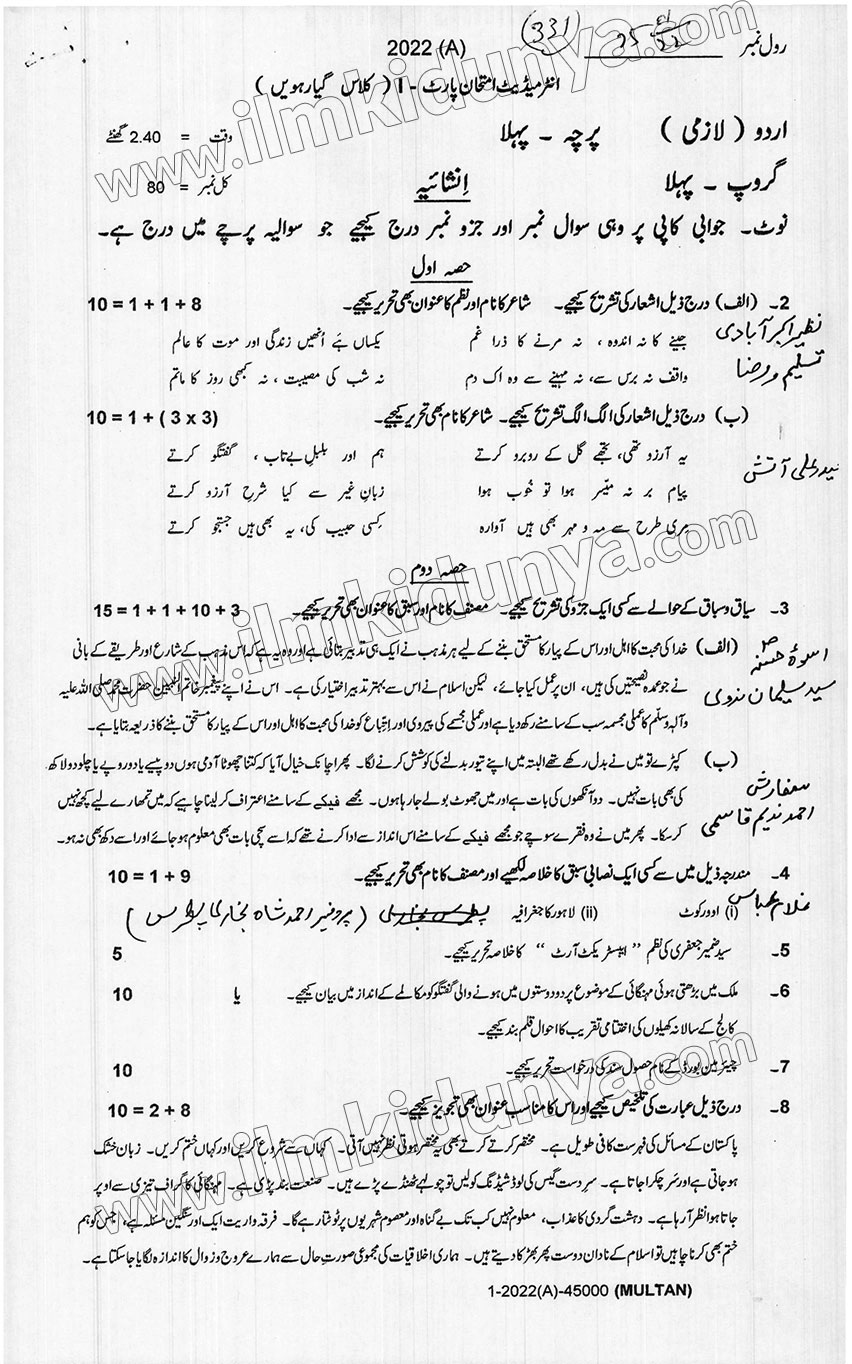 رول نمبر
(331) 
2022 (A)
انٹرمیڈیٹ امتحان پارٹ - I ( کلاس گیارھویں )
اردو ( لازمی ) پرچہ ۔ پہلا وقت = 2.40 گھنٹے
گروپ ۔ پہلا اِنشائیہ کل نمبر = 80
نوٹ۔ جوابی کاپی پر وہی سوال نمبر اور جزو نمبر درج کیجیے جو سوالیہ پرچے میں درج ہے۔
حصہ اول
2۔ (الف) درج ذیل اشعار کی تشریح کیجیے۔ شاعر کا نام اور نظم کا عنوان بھی تحریر کیجیے۔ 10 = 1 + 1 + 8
نظیر اکبر آبادی
جینے کا نہ اندوہ ، نہ مرنے کا ذرا غم یکساں ہے اُنھیں زندگی اور موت کا عالم
تسلیم و رضا
واقف نہ برس سے، نہ مہینے سے وہ اک دم نہ شب کی مصیبت ، نہ کبھی روز کا ماتم
(ب) درج ذیل اشعار کی الگ الگ تشریح کیجیے۔ شاعر کا نام بھی تحریر کیجیے۔ 10 = 1 + ( 3 x 3)
یہ آرزو تھی، تجھے گل کے روبرو کرتے ہم اور بلبلِ بے تاب ، گفتگو کرتے
علی آتش
پیام بر نہ میّسر ہوا تو خُوب ہوا زبانِ غیر سے کیا شرحِ آرزو کرتے
مِری طرح سے مہ و مہر بھی ہیں آوارہ کِسی حبیب کی، یہ بھی ہیں جستجو کرتے
حصہ دوم
3۔ سیاق و سباق کے حوالے سے کسی ایک جزو کی تشریح کیجیے۔ مصنف کا نام اور سبق کا عنوان بھی تحریر کیجیے۔ 15 = 1 + 1 + 10 + 3
(الف) خدا کی محبت کا اہل اور اس کے پیار کا مستحق بننے کے لیے ہر مذہب نے ایک ہی تدبیر بتائی ہے اور وہ یہ ہے کہ اس مذہب کے شارع اور طریقے کے بانی
اسوۂ حسنہ
نے جو عمدہ نصیحتیں کی ہیں، ان پر عمل کیا جائے، لیکن اسلام نے اس سے بہتر تدبیر اختیار کی ہے۔ اس نے اپنے پیغمبر خاتم النبیین حضرت محمد صلی اللہ علیہ
سید سلیمان ندوی
وآلہٖ وسلّم کا عملی مجسمہ سب کے سامنے رکھ دیا ہے اور عملی مجسمے کی پیروی اور اِتباع کو خدا کی محبت کا اہل اور اس کے پیار کا مستحق بننے کا ذریعہ بتایا ہے۔
(ب) کپڑے تو میں نے بدل رکھے تھے البتہ میں اپنے تیور بدلنے کی کوشش کرنے لگا۔ پھر اچانک خیال آیا کہ کتنا چھوٹا آدمی ہوں دو پیسے یا دو روپے یا چلو دو لاکھ
سفارش
کی بھی بات نہیں۔ دو آنکھوں کی بات ہے اور میں جھوٹ بولے جا رہا ہوں۔ مجھے فیکے کے سامنے اعتراف کر لینا چاہیے کہ میں تمھارے لیے کچھ نہیں
احمد ندیم قاسمی
کر سکا۔ پھر میں نے وہ فقرے سوچے جو مجھے فیکے کے سامنے اس انداز سے ادا کرنے تھے کہ اسے سچی بات بھی معلوم ہو جائے اور اسے دکھ بھی نہ ہو۔
4۔ مندرجہ ذیل میں سے کسی ایک نصابی سبق کا خلاصہ لکھیے اور مصنف کا نام بھی تحریر کیجیے۔ 10 = 1 + 9
غلام عباس
(i) اوورکوٹ (ii) لاہور کا جغرافیہ پطرس بخاری ( پروفیسر احمد شاہ بخاری پطرس )
5۔ سید ضمیر جعفری کی نظم " ایبسٹریکٹ آرٹ " کا خلاصہ تحریر کیجیے۔ 5
6۔ ملک میں بڑھتی ہوئی مہنگائی کے موضوع پر دو دوستوں میں ہونے والی گفتگو کو مکالمے کے انداز میں بیان کیجیے۔ یا 10
کالج کے سالانہ کھیلوں کی اختتامی تقریب کا احوال قلم بند کیجیے۔
7۔ چیئرمین بورڈ کے نام حصول سند کی درخواست تحریر کیجیے۔ 10
8۔ درج ذیل عبارت کی تلخیص کیجیے اور اس کا مناسب عنوان بھی تجویز کیجیے۔ 10 = 2 + 8
پاکستان کے مسائل کی فہرست کافی طویل ہے۔ مختصر کرتے کرتے بھی یہ مختصر ہوتی نظر نہیں آتی۔ کہاں سے شروع کریں اور کہاں ختم کریں۔ زبان خشک
ہو جاتی ہے اور سَر چکرا جاتا ہے۔ سرِدست گیس کی لوڈ شیڈنگ کو لیں تو چولہے ٹھنڈے پڑے ہیں۔ صنعت بند پڑی ہے۔ مہنگائی کا گراف تیزی سے اوپر
جاتا ہوا نظر آ رہا ہے۔ دہشت گردی کا عذاب، معلوم نہیں کب تک بے گناہ اور معصوم شہریوں پر ٹوٹتا رہے گا۔ فرقہ واریت ایک اور سنگین مسئلہ ہے، جس کو ہم
ختم بھی کرنا چاہیں تو اسلام کے نادان دوست پھر بھڑکا دیتے ہیں۔ ہماری اخلاقیات کی مجموعی صورتِ حال سے ہمارے عروج و زوال کا اندازہ لگایا جا سکتا ہے۔
1-2022(A)-45000 (MULTAN)
www.ilmkidunya.com
www.ilmkidunya.com
www.ilmkidunya.com
www.ilmkidunya.com